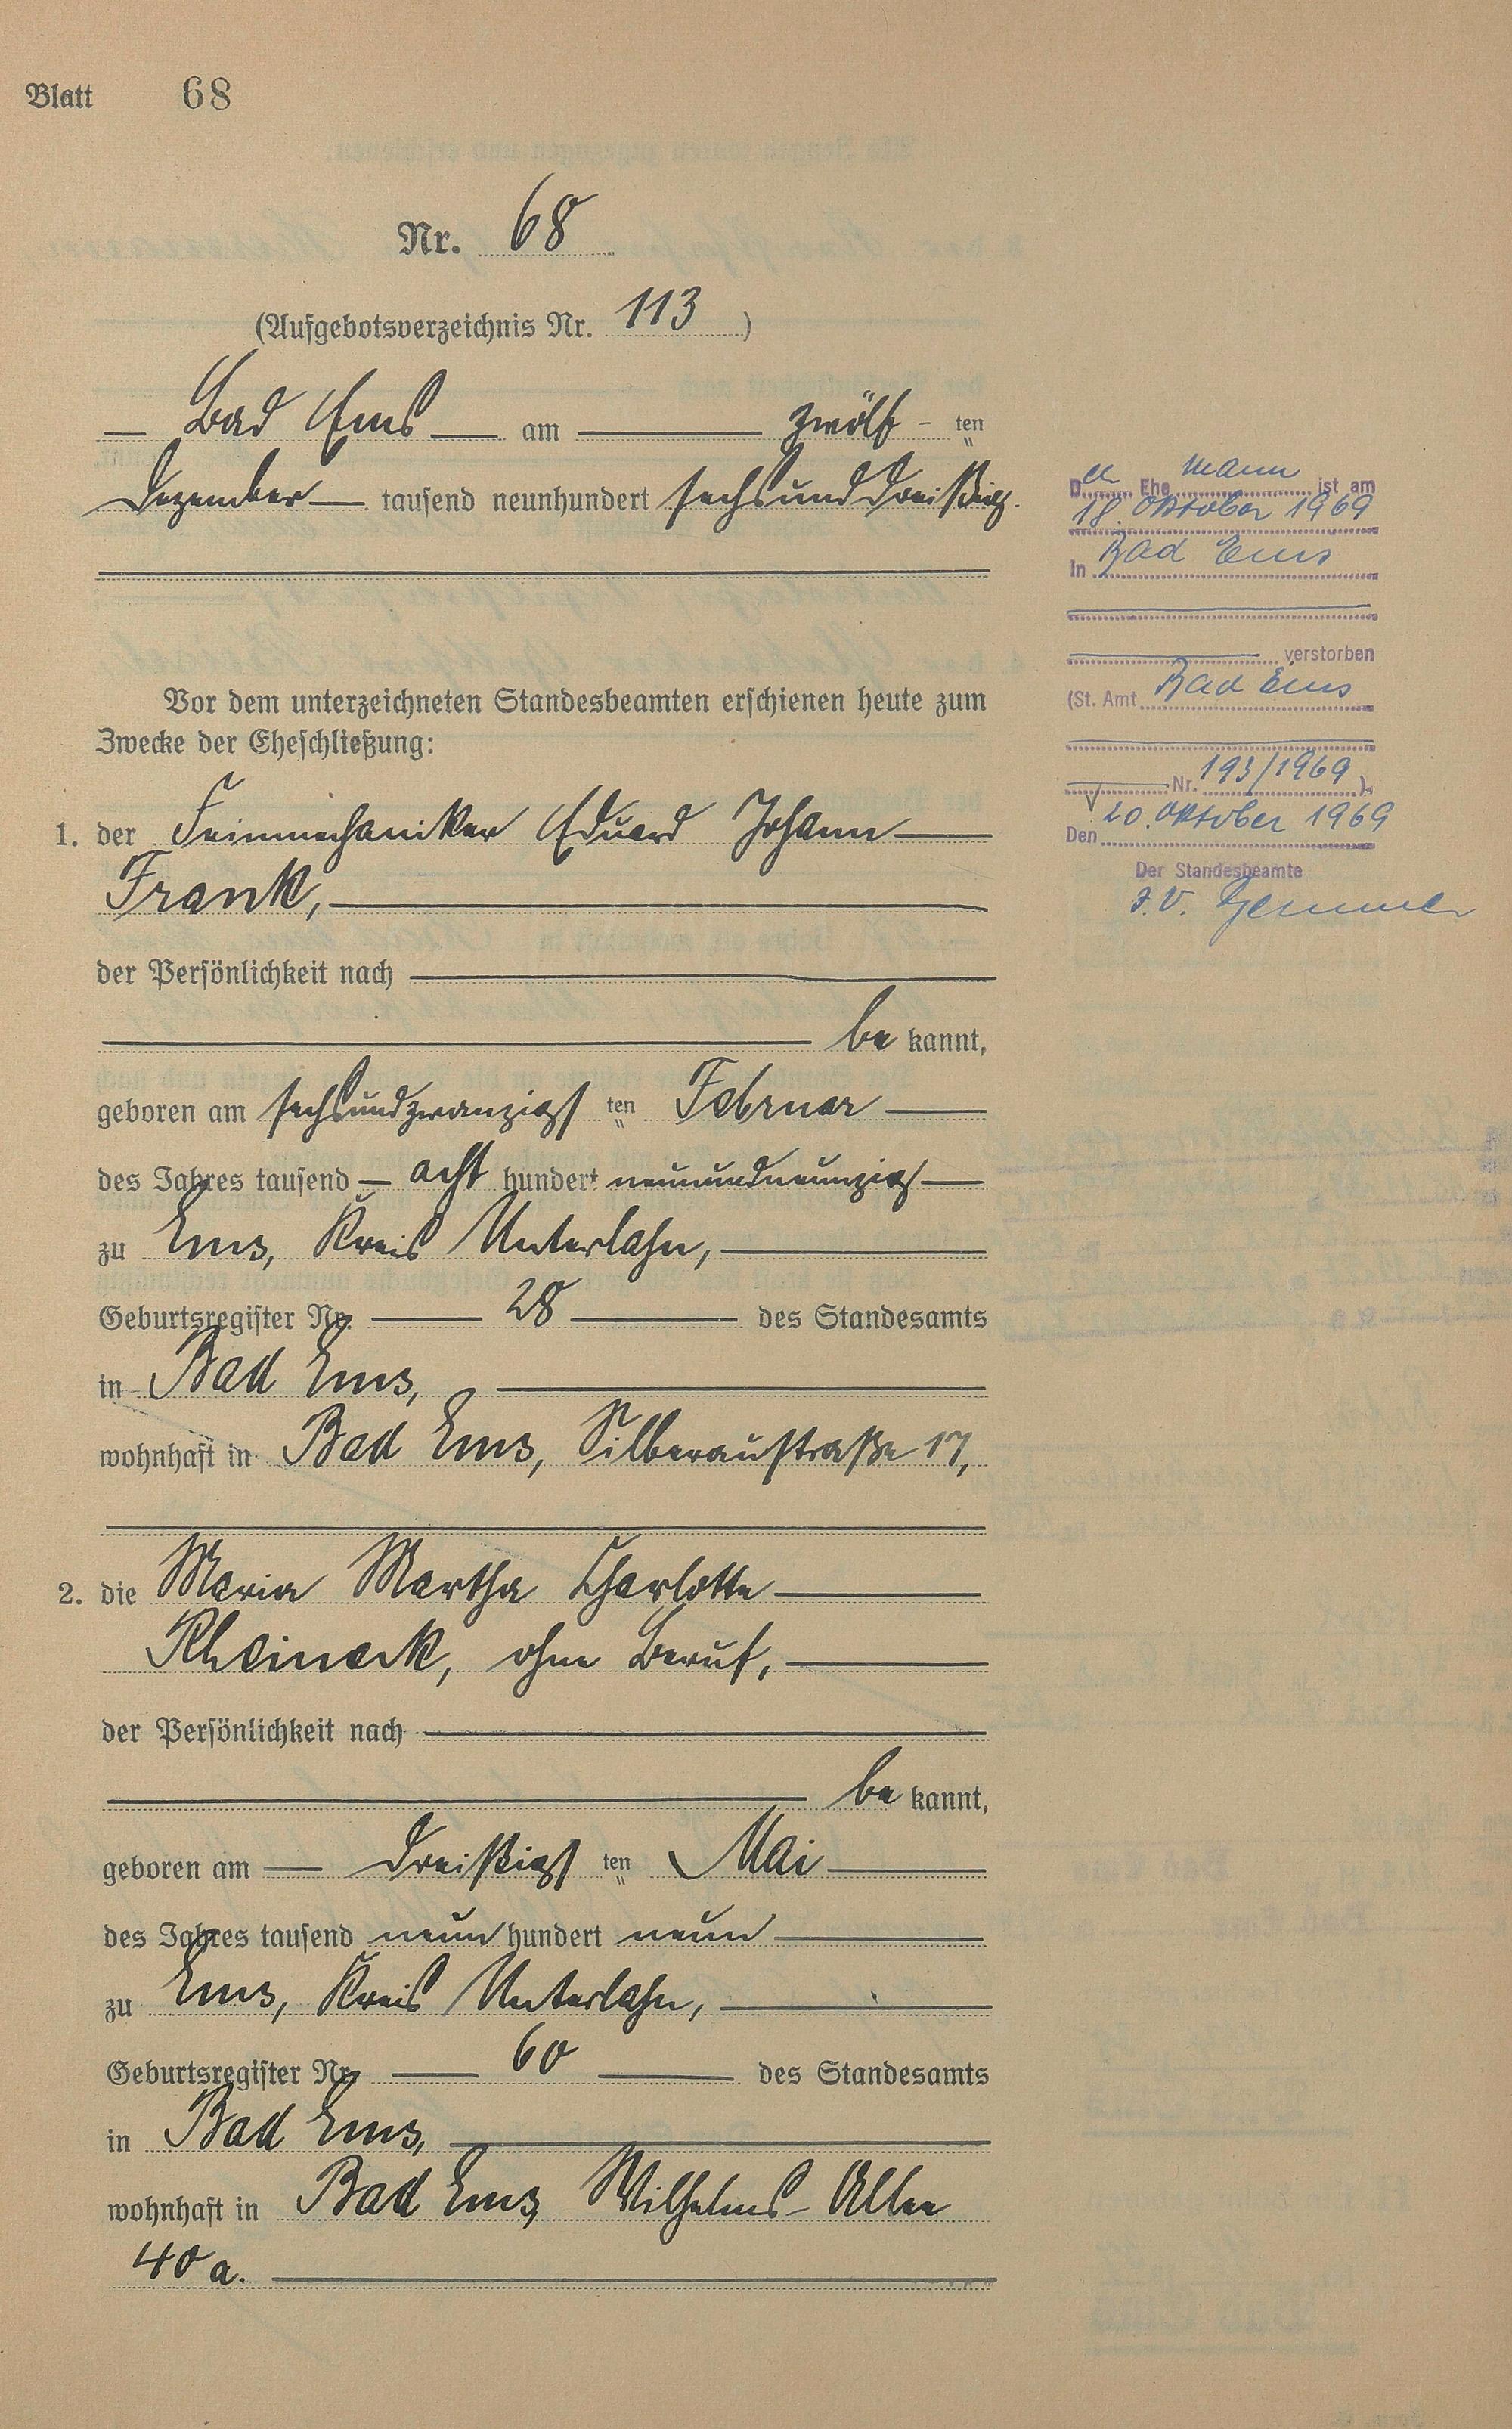 Blatt 68
Nr. 68
(Aufgebotsverzeichnis Nr. 113)
— Bad Ems — am — zwölf - ten
Dezember — tausend neunhundert sechsunddreißig.
Vor dem unterzeichneten Standesbeamten erschienen heute zum
Zwecke der Eheschließung:
1. der Feinmechaniker Eduard Johann —
Frank, —
der Persönlichkeit nach —
— be kannt,
geboren am sechsundzwanzigs ten Februar —
des Jahres tausend — acht hundert neunundneunzig —
zu Ems, Kreis Unterlahn, —
Geburtsregister Nr. — 28 — des Standesamts
in Bad Ems, —
wohnhaft in Bad Ems, Silberaustraße 17,
2. die Maria Martha Charlotte —
Rheineck, ohne Beruf, —
der Persönlichkeit nach —
— be kannt,
geboren am — dreißigs ten Mai —
des Jahres tausend neun hundert neun —
zu Ems, Kreis Unterlahn, —
Geburtsregister Nr. — 60 — des Standesamts
in Bad Ems, —
wohnhaft in Bad Ems, Wilhelms-Allee
40 a. —
Der Ehe mann ist am
18. Oktober 1969
In Bad Ems
— verstorben
(St. Amt Bad Ems
— Nr. 193/1969).
Den 20. Oktober 1969
Der Standesbeamte
I.V.